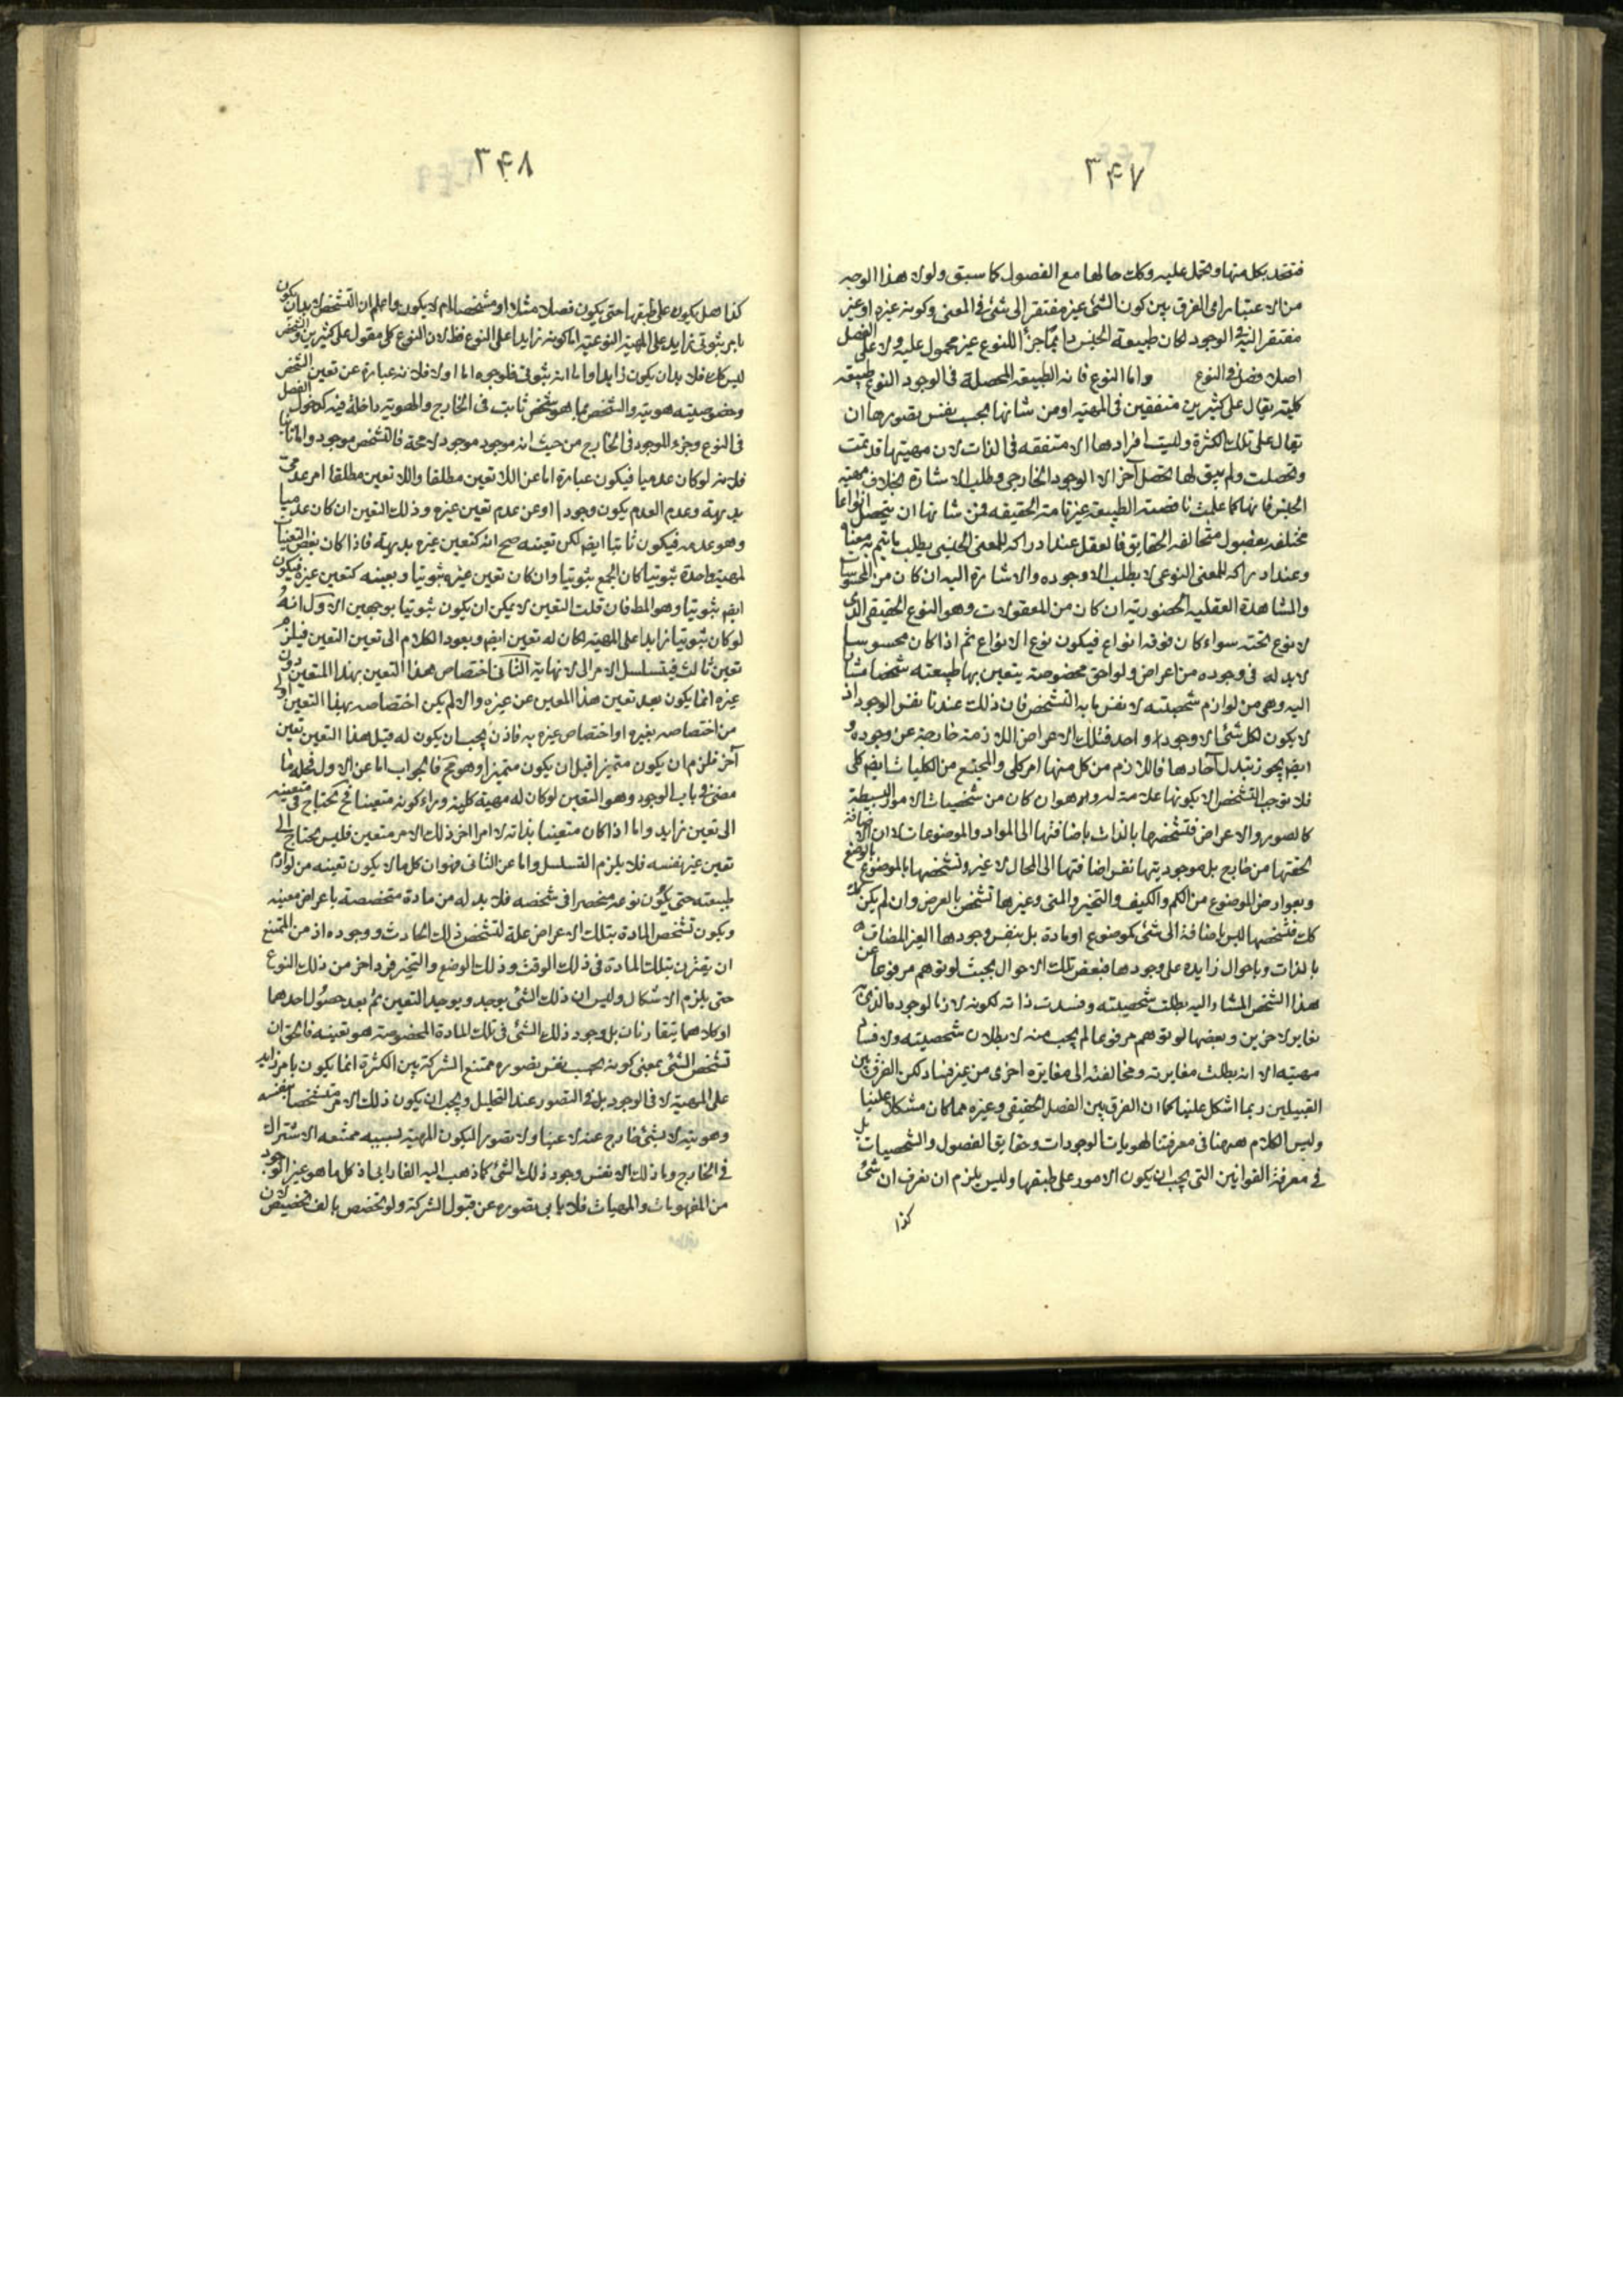 ٣۴٧
فتتحد بكل منها وتحمل عليه وكك حالها مع الفصول كما سبق ولولا هذا الوجه
من الاعتبار اى الفرق بين كون الشئ غيره مفتقر الى شئ فى المعنى وكونه غيره او غير
مفتقر اليه فى الوجود لكان طبيعة الجنس دايما جزءا للنوع غير محمول عليه ولا على الفصل
اصلا فصل فى النوع واما النوع فانه الطبيعة المحصلة فى الوجود النوع طبيعة
كلية يقال على كثيرين متفقين فى المهية او من شانها بحسب نفس تصورها ان
تقال على تلك الكثرة وليست افرادها الا متفقة فى الذات لان مهيتها قد تمت
وتحصلت ولم يبق لها تحصل آخر الا الوجود الخارجى وطلب الاشارة بخلاف مهية
الجنس فانها كما علمت ناقصة الطبيعة غير تامة الحقيقة فمن شانها ان يتحصل انواعا
مختلفة بفصول متخالفة الحقايق فالعقل عند ادراكه للمعنى الجنسى يطلب ما يتم به معناه
وعند ادراكه للمعنى النوعى لا يطلب الا وجوده والاشارة اليه ان كان من المحسوسات
والمشاهدة العقلية الحضورية ان كان من المعقولات وهو النوع الحقيقى الذى
لا نوع تحته سواء كان فوقه انواع فيكون نوع الانواع ثم اذا كان محسوسا
لابد له فى وجوده من اعراض ولواحق مخصوصة يتعين بها طبيعته شخصا مشارا
اليه وهى من لوازم شخصيته لا نفس ما به التشخص فان ذلك عندنا نفس الوجود اذ
لا يكون لكل شئ الا وجود واحد فتلك الاعراض اللازمة خارجة عن وجوده و
ايضا يجوز تبدل آحادها فاللازم من كل منها امر كلى والمجتمع من الكليات ايضا كلى
فلا توجب التشخص الا بكونها علامة له وان كان من شخصيات الامور البسيطة
كالصور والاعراض فتشخصها بالذات باضافتها الى المواد والموضوعات لا ان الاضافة
لحقتها من خارج بل موجوديتها نفس اضافتها الى المحال لا غير وتشخصها بالموضوع بالوضع
وبعوارض الموضوع من الكم والكيف والتحيز والمتى وغيرها تشخص بالعرض وان لم يكن
كك فتشخصها ليس باضافة الى شئ كموضوع او مادة بل بنفس وجودها الغير المضاف
بالذات وباحوال زايدة على وجودها فبعض تلك الاحوال بحيث لو توهم مرفوعا عن
هذا الشخص المشار اليه بطلت شخصيته وفسدت ذاته لكونه لازما لوجوده
مغاير لاخرين وبعضها لو توهم مرفوعا لم يجب منه لا بطلان شخصيته ولا فساد
مهيته الا انه بطلت مغايرته ومخالفته الى مغايرة اخرى من غير فساد لكن الفرق بين
القبيلين ربما اشكل علينا كما ان الفرق بين الفصل الحقيقى وغيره مما كان مشكلا علينا
وليس الكلام ههنا فى معرفتنا لهويات الوجودات وحقايق الفصول والشخصيات بل
فى معرفة القوانين التى يجب ان يكون الامور على طبقها وليس يلزم ان نعرف ان شئ
كذا
٣۴٨
كذا هل يكون على طبقها حتى يكون فصلا مثلا او مشخصا ام لا يكون واعلم ان التشخص لابد ان يكون
بامر ثبوتى زايد على المهية النوعية اما كونه زايدا على النوع فظ لان النوع كلى مقول على كثيرين والشخص
ليس كك فلابد ان يكون زايدا واما انه ثبوتى فلوجوه اما اولا فلانه عبارة عن تعين الشخص
وخصوصيته هويته والشخص بما هو شخص ثابت فى الخارج والهوية داخلة فيه كدخول الفصل
فى النوع وجزء الموجود فى الخارج من حيث انه موجود موجود لا محة فالتشخص موجود واما ثانيا
فلانه لو كان عدميا فيكون عبارة اما عن اللا تعين مطلقا واللا تعين مطلقا امر عدمى
بديهة وعدم العدم يكون وجودا او عن عدم تعين غيره وذلك التعين ان كان عدميا
وهو عدمه فيكون ثابتا ايضا لكن تعينه صح انه كتعين غيره بديهة فاذا كان بعض التعينات
لمهية واحدة ثبوتيا كان الجمع ثبوتيا وان كان تعين غيره ثبوتيا وبعينه كتعين غيره فيكون
ايضا ثبوتيا وهو المط فان قلت التعين لا يمكن ان يكون ثبوتيا بوجهين الاول انه
لو كان ثبوتيا زايدا على المهية لكان له تعين ايضا ويعود الكلام الى تعين التعين فيلزم
تعين ثالث فيتسلسل الامر الى لا نهاية الثانى اختصاص هذا التعين بهذا المتعين دون
غيره انما يكون بعد تعين هذا المعين عن غيره والا لم يكن اختصاصه بهذا التعين اولى
من اختصاصه بغيره او اختصاص غيره به فاذن يجب ان يكون له قبل هذا التعين تعين
آخر فلزم ان يكون متميزا قبل ان يكون متميزا وهو مح فالجواب اما عن الاول فعلى ما
مضى فى باب الوجود وهو التعين لو كان له مهية كلية وراء كونه متعينا فح يحتاج فى متعينيته
الى تعين زايد واما اذا كان متعينا بذاته لا امرا اخر ذلك الامر متعين فليس يحتاج الى
تعين غير نفسه فلا يلزم التسلسل واما عن الثانى فهو ان كل ما لا يكون تعينه من لوازم
طبيعته حتى يكون نوعه منحصرا فى شخصه فلابد له من مادة متخصصة باعراض معينة
ويكون تشخص المادة بتلك الاعراض علة لتشخص ذلك الحادث ووجوده اذ من الممتنع
ان يقترن بتلك المادة فى ذلك الوقت وذلك الوضع والتحيز فرد اخر من ذلك النوع
حتى يلزم الاشكال وليس ان ذلك الشئ يوجد ويوجد التعين ثم بعد حصول احدهما
او كلاهما يتقارنان بل وجود ذلك الشئ فى تلك المادة المخصوصة هو تعينه فالحق ان
تشخص الشئ بمعنى كونه بحسب نفس تصوره ممتنع الشركة بين الكثرة انما يكون بامر زايد
على المهية لا فى الوجود بل فى التصور عند التحليل ويجب ان يكون ذلك الامر متشخصا بنفسه
وهويته لا بشئ خارج عنه لا عينا ولا تصورا ليكون المهية بسببه ممتنعه الاشتراك
فى الخارج وما ذلك الا نفس وجود ذلك الشئ كما ذهب اليه الفارابى اذ كل ما هو غير الوجود
من المفهومات والمهيات فلا يابى تصوره عن قبول الشركة ولو تخصص بالف تخصيص لان